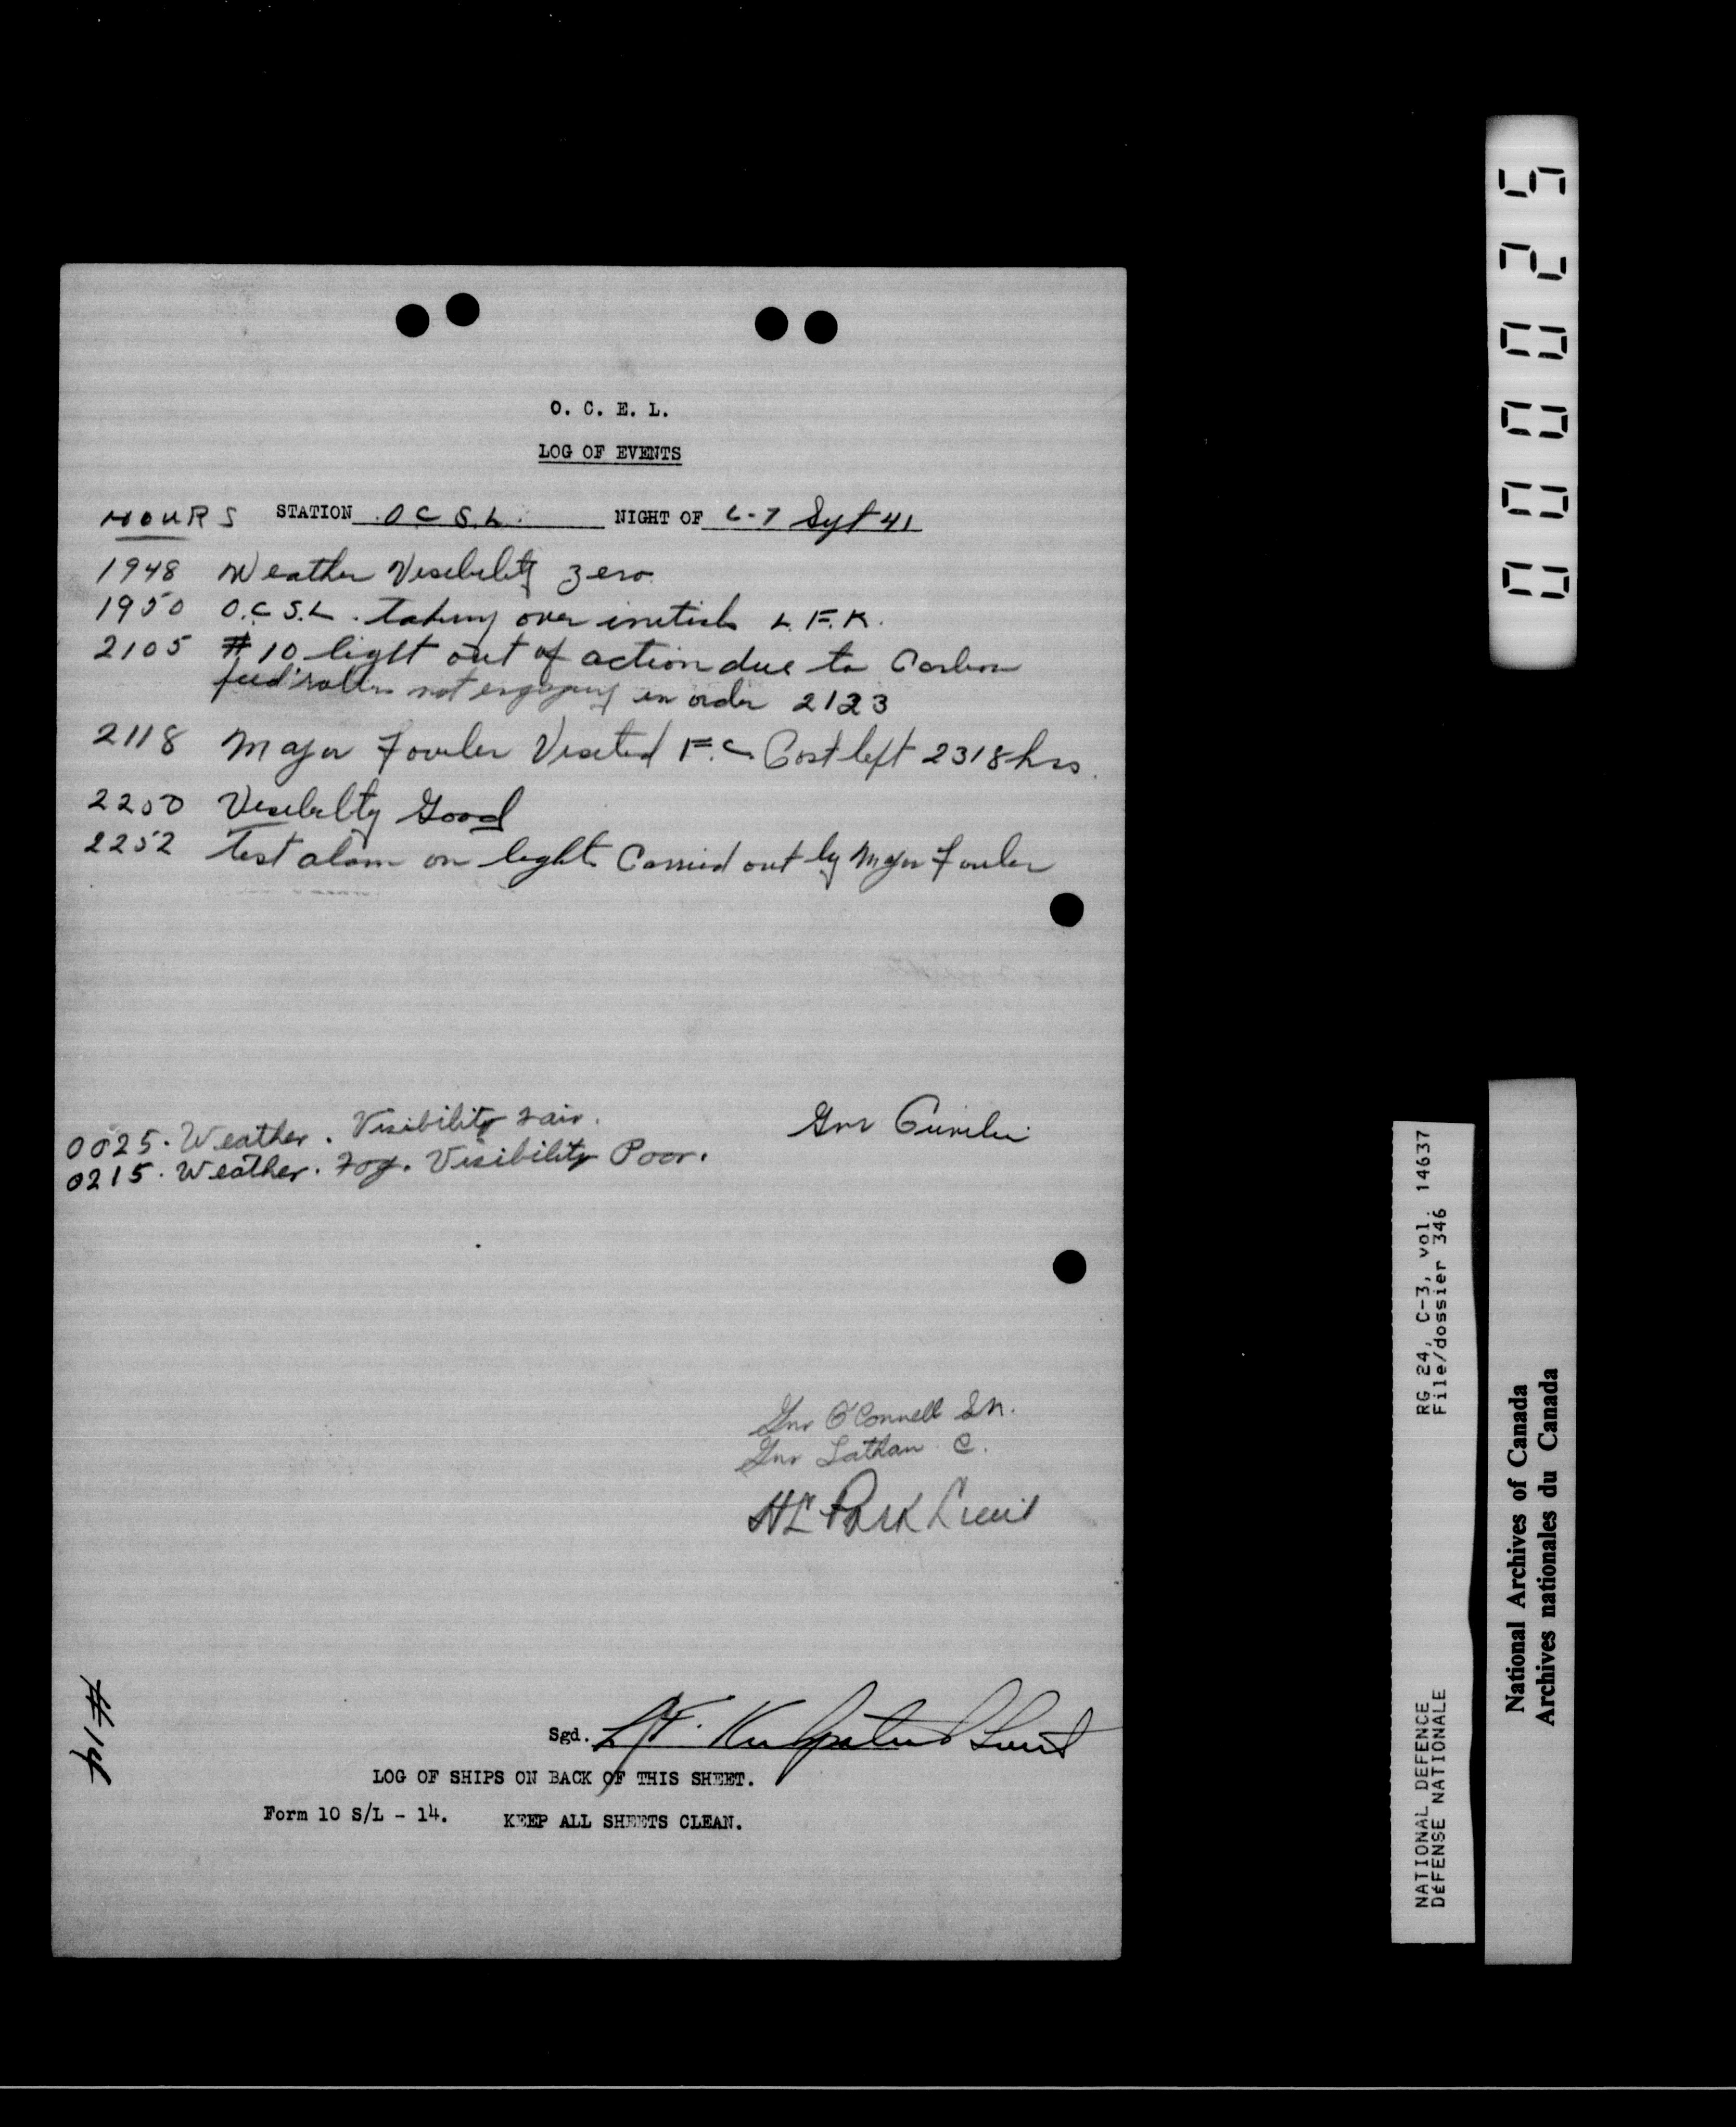 O. C. E. L.
LOG OF EVENTS
HOURS STATION O C S.L. NIGHT OF 6-7 Sept 41
1948 Weather Visibility zero
1950 O.C S.L. taking over initials L.F.K.
2105 #10 light out of action due to Carbon
feed rollers not engaging in order 2123
2118 Major Fowler Visited F.C Post left 2318 hrs.
2250 Visibilty Good
2252 Test alarm on lights Carried out by Major Fowler
0025. Weather. Visibility Fair.
Gnr
0215. Weather. Fog. Visibility Poor.
Gnr O'Connell
Gnr Lathan C.
HL Park Lieut
Sgd. L F. Kirkpatrick Lieut
LOG OF SHIPS ON BACK OF THIS SHEET.
Form 10 S/L - 14. KEEP ALL SHEETS CLEAN.
#14
000025
RG 24, C-3, vol. 14637
File/dossier 346
NATIONAL DEFENCE
DÉFENSE NATIONALE
National Archives of Canada
Archives nationales du Canada